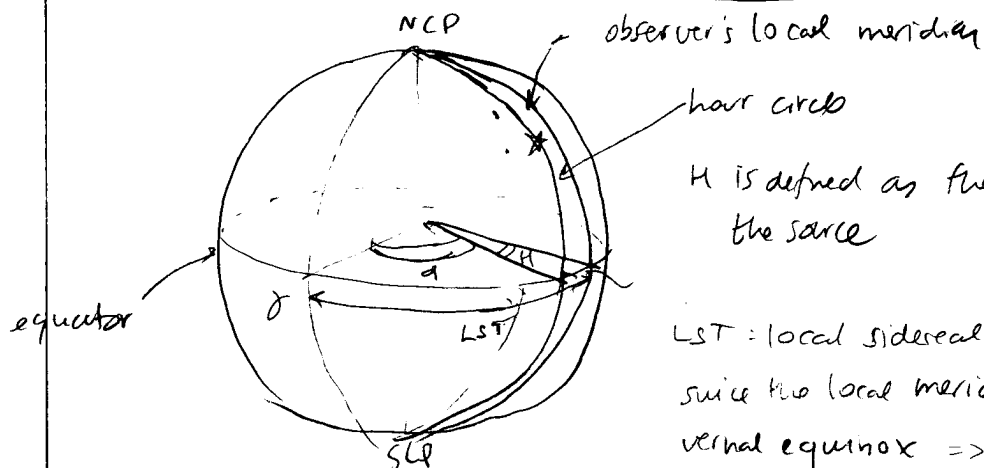 NCP
observer's local meridian
hour circle
H is defined as the
the source
equator
γ
α
H
LST
LST : local sidereal
since the local meri
vernal equinox =>
SCP